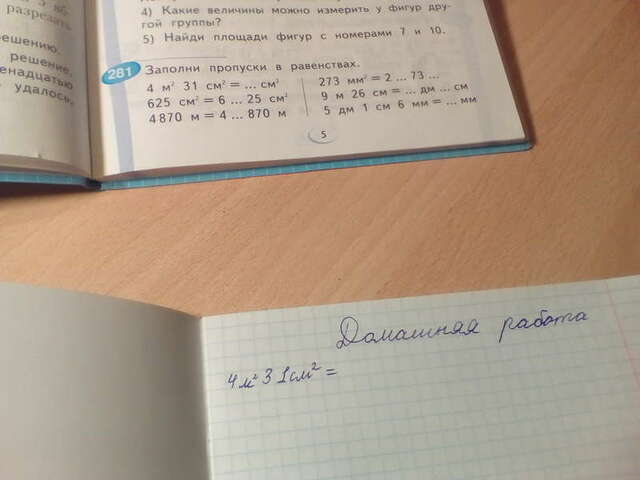 разрезать
решению.
решение.
енадцатью
удалось,
4) Какие величины можно измерить у фигур дру-
гой группы?
5) Найди площади фигур с номерами 7 и 10.
281 Заполни пропуски в равенствах.
4 м² 31 см² = ... см²
625 см² = 6 ... 25 см²
4 870 м = 4 ... 870 м
273 мм² = 2 ... 73 ...
9 м 26 см = ... дм ... см
5 дм 1 см 6 мм = ... мм
5
Домашняя работа
4м² 31см² =